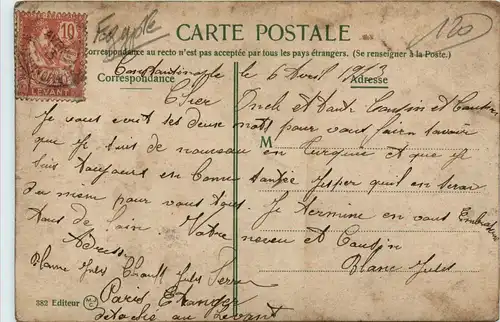 CARTE POSTALE
Correspondance au recto n'est pas acceptée par tous les pays étrangers. (Se renseigner à la Poste.)
Correspondance
Adresse
10
LEVANT
120
Constantinople le 6 Avril
Cher Oncle et tante Cousin et Cousine
Je vous écrit ses deux mots pour vous faire savoir
M
que je suis de nouveau en Turquie et que je
suis toujours en bonne santée j'esper quil en serai
du meme pour vous tous. Je termine en vous Embrassan
tous de loin. Votre neveu et Cousin
Blanc Jules
Adresse
Blanc Jules Chauff Jules Ferry
Paris Etranger
détaché au Levant
382 Editeur